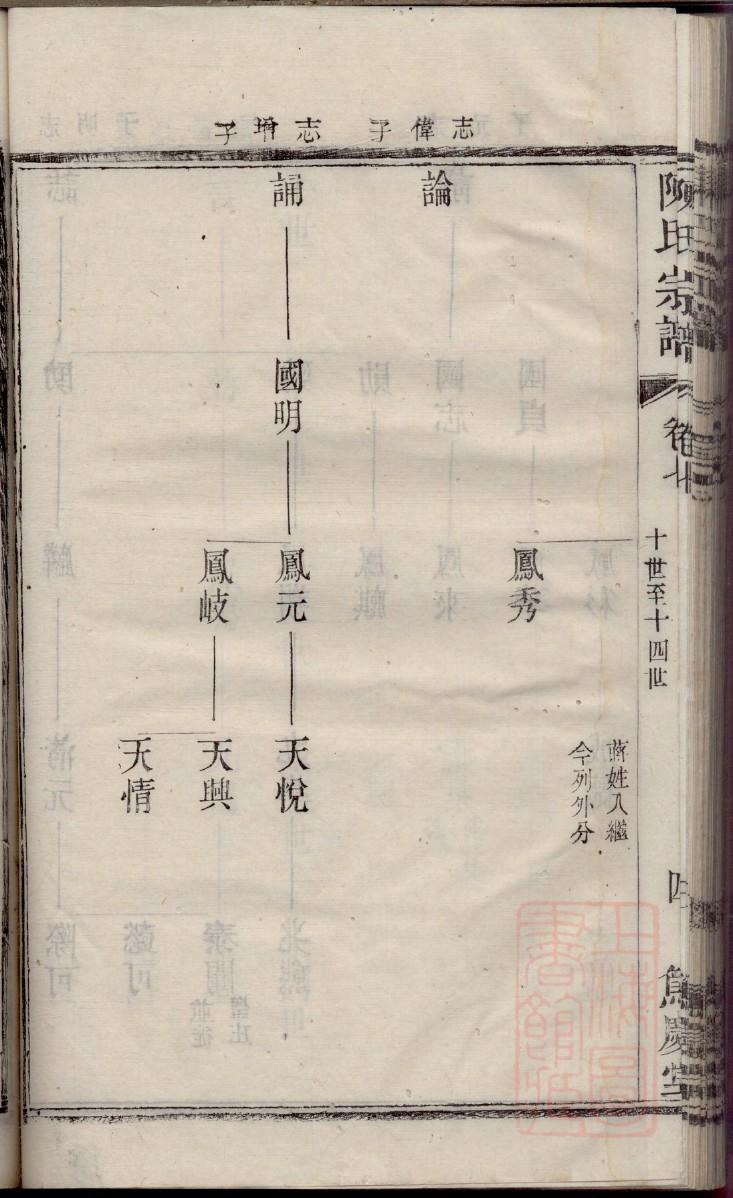 陳氏宗譜
卷十
十世至十四世
四
篤慶堂
志偉子
志增子
蔣姓入繼
今列外分
鳳秀
論
誦
國明
鳳元
天悅
鳳岐
天興
天情